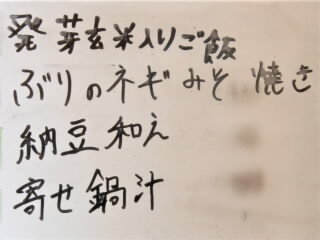 発芽玄米入りご飯
ぶりのネギみそ焼き
納豆和え
寄せ鍋汁